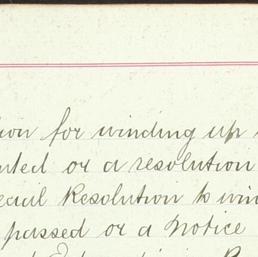 tion for winding up
nted or a resolution
ecial Resolution to win
passed or a Notice